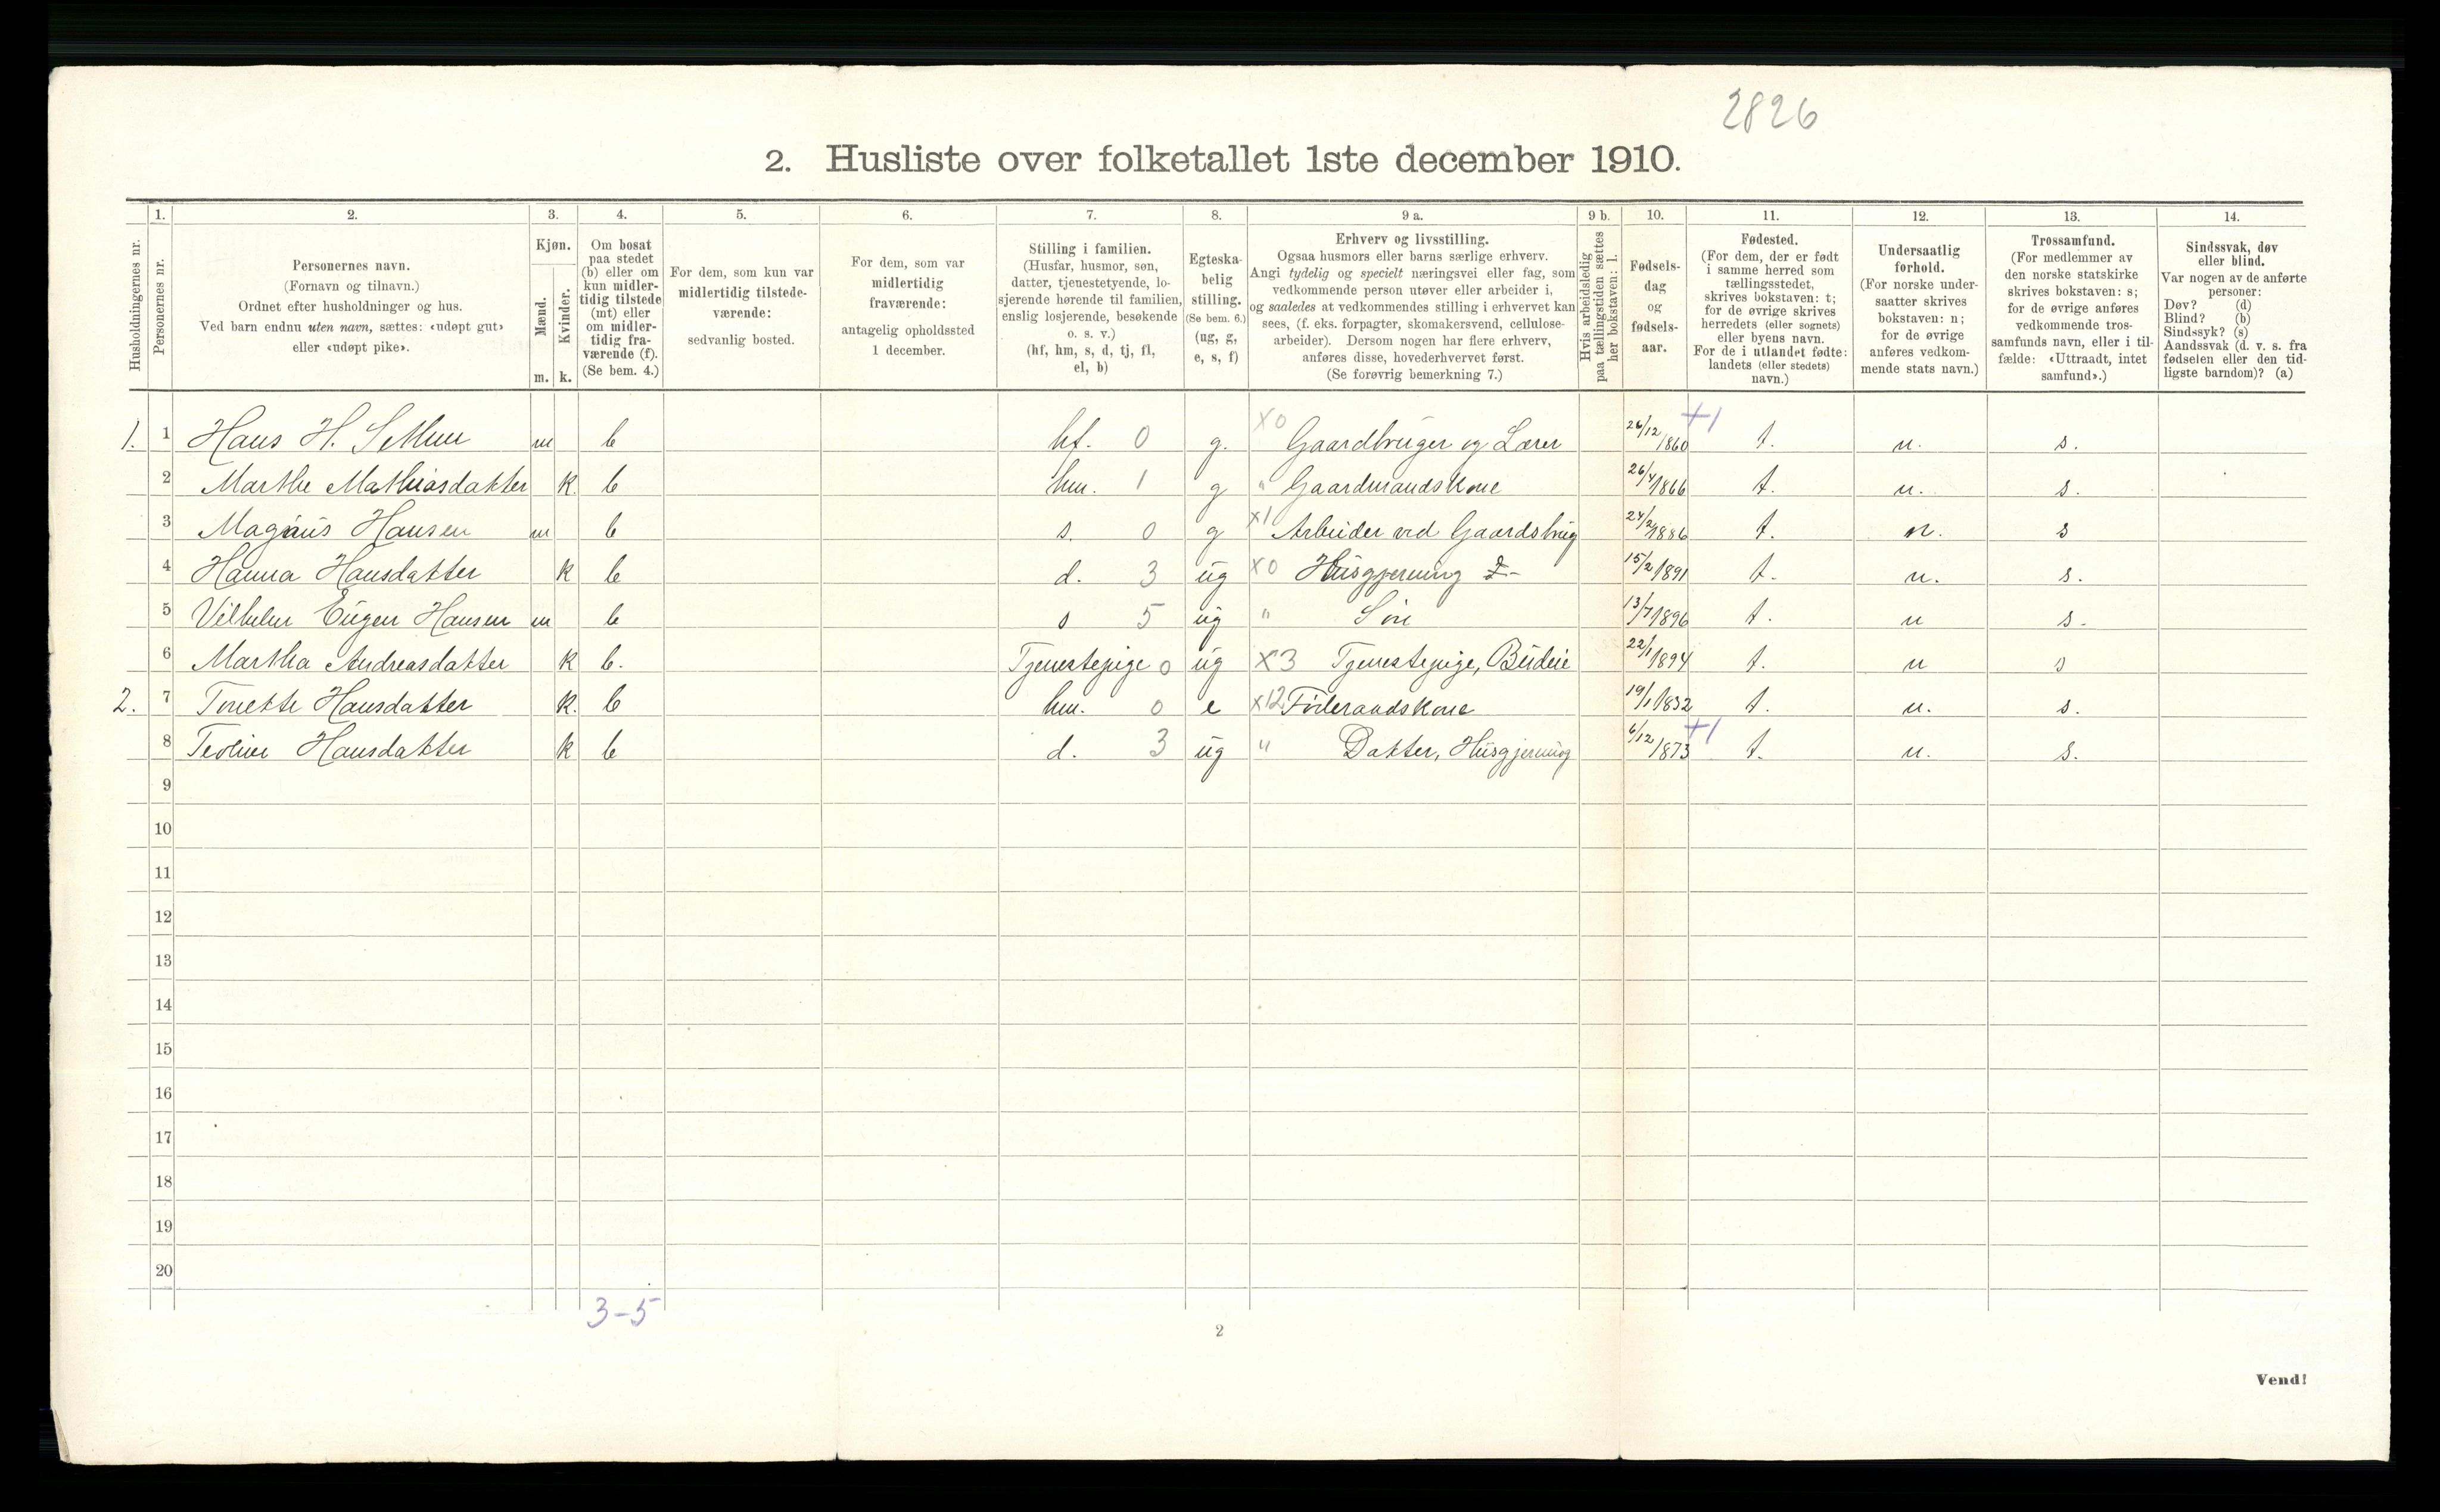 2826
2. Husliste over folketallet 1ste december 1910.
Husholdningernes nr.
1. Personernes nr.
2. Personernes navn.
(Fornavn og tilnavn.)
Ordnet efter husholdninger og hus.
Ved barn endnu uten navn, sættes: «udøpt gut»
eller «udøpt pike».
3. Kjøn.
Mænd. m.
Kvinder. k.
4. Om bosat
paa stedet
(b) eller om
kun midler-
tidig tilstede
(mt) eller
om midler-
tidig fra-
værende (f).
(Se bem. 4.)
5. For dem, som kun var
midlertidig tilstede-
værende:
sedvanlig bosted.
6. For dem, som var
midlertidig
fraværende:
antagelig opholdssted
1 december.
7. Stilling i familien.
(Husfar, husmor, søn,
datter, tjenestetyende, lo-
sjerende hørende til familien,
enslig losjerende, besøkende
o. s. v.)
(hf, hm, s, d, tj, fl,
el, b)
8. Egteska-
belig
stilling.
(Se bem. 6.)
(ug, g,
e, s, f)
9 a. Erhverv og livsstilling.
Ogsaa husmors eller barns særlige erhverv.
Angi tydelig og specielt næringsvei eller fag, som
vedkommende person utøver eller arbeider i,
og saaledes at vedkommendes stilling i erhvervet kan
sees, (f. eks. forpagter, skomakersvend, cellulose-
arbeider). Dersom nogen har flere erhverv,
anføres disse, hovederhvervet først.
(Se forøvrig bemerkning 7.)
9 b. Hvis arbeidsledig
paa tællingstiden sættes
her bokstaven: l.
10. Fødsels-
dag
og
fødsels-
aar.
11. Fødested.
(For dem, der er født
i samme herred som
tællingsstedet,
skrives bokstaven: t;
for de øvrige skrives
herredets (eller sognets)
eller byens navn.
For de i utlandet fødte:
landets (eller stedets)
navn.)
12. Undersaatlig
forhold.
(For norske under-
saatter skrives
bokstaven: n;
for de øvrige
anføres vedkom-
mende stats navn.)
13. Trossamfund.
(For medlemmer av
den norske statskirke
skrives bokstaven: s;
for de øvrige anføres
vedkommende tros-
samfunds navn, eller i til-
fælde: «Uttraadt, intet
samfund».)
14. Sindssvak, døv
eller blind.
Var nogen av de anførte
personer:
Døv? (d)
Blind? (b)
Sindssyk? (s)
Aandssvak (d. v. s. fra
fødselen eller den tid-
ligste barndom)? (a)
1. 1 Hans H. m b hf. 0 g. X0 Gaardbruger og Lærer 26/12 1860 +1 t. n. s.
2 Marthe Mathiasdatter k. b hm. 1 g " Gaardmandskone 26/4 1866 t. n. s.
3 Magnus Hansen m b s. 0 g X1 Arbeider ved Gaardsbrug 24/2 1886 t. n. s
4 Hanna Hansdatter k b d. 3 ug X0 Husgjerning 15/2 1891 t. n. s.
5 Vilhelm Eugen Hansen m b s 5 ug " Søn 13/7 1896 t. n s.
6 Martha Andreasdatter k b. Tjenestepige 0 ug X3 Tjenestepige, Budeie 22/1 1894 t. n s
2. 7 Tonette Hansdatter k. b hm. 0 e X12 Føderaadskone 19/1 1832 t. n. s.
8 Teoline Hansdatter k b d. 3 ug " Datter, Husgjerning 6/12 1873 +1 t. n. s.
9
10
11
12
13
14
15
16
17
18
19
20
3-5
2
Vend!